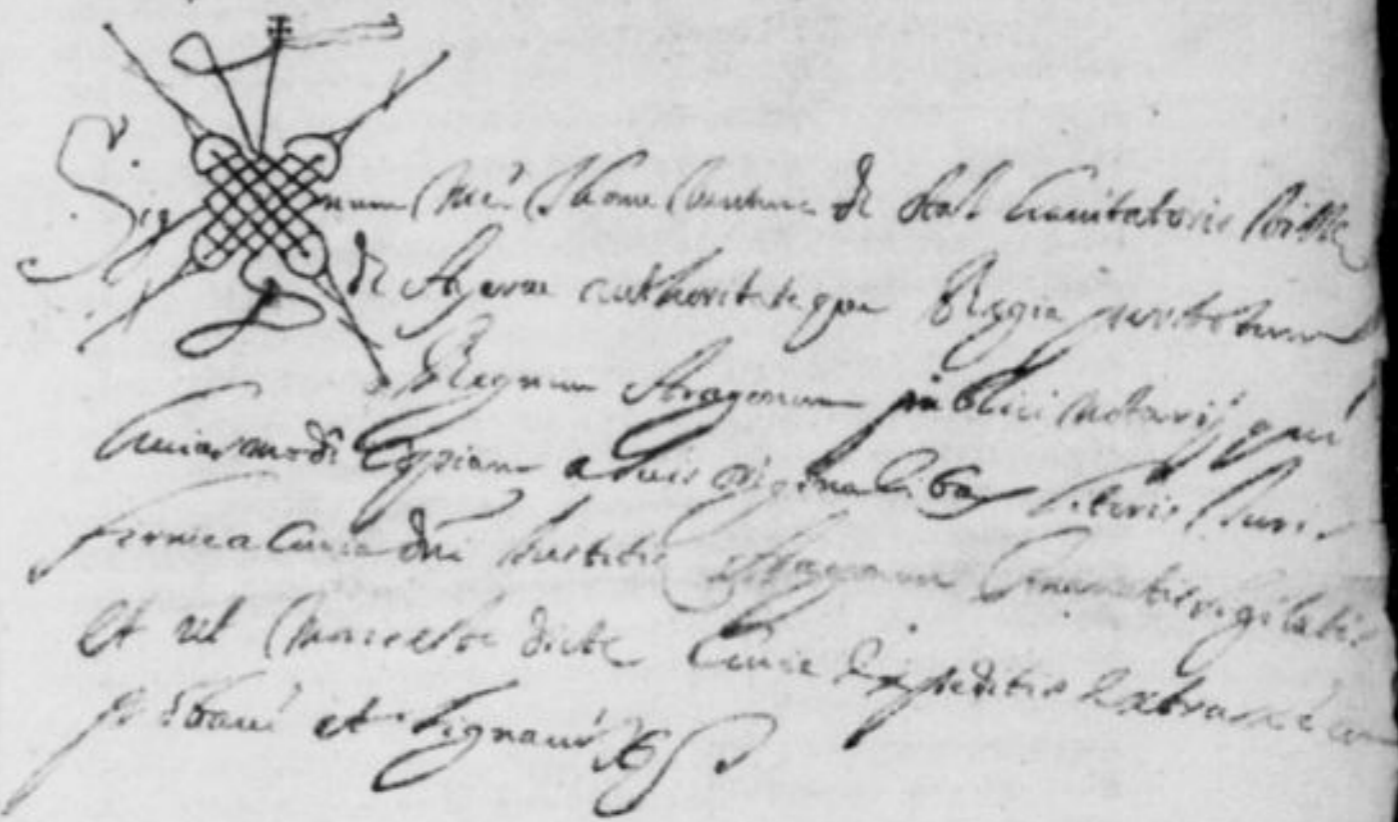 Signum Mei Thome Ventura de
de Ayerve authoritateque Regia per totum
Regnum Aragonum publici Notarij qui
huiusmodi Copiam a suis originalibus literis Juris
firme a Curia dni Justitie Aragonum emanatis sigilatis
et ut dicte Curie expeditis extraxi cum
probavi et signavi